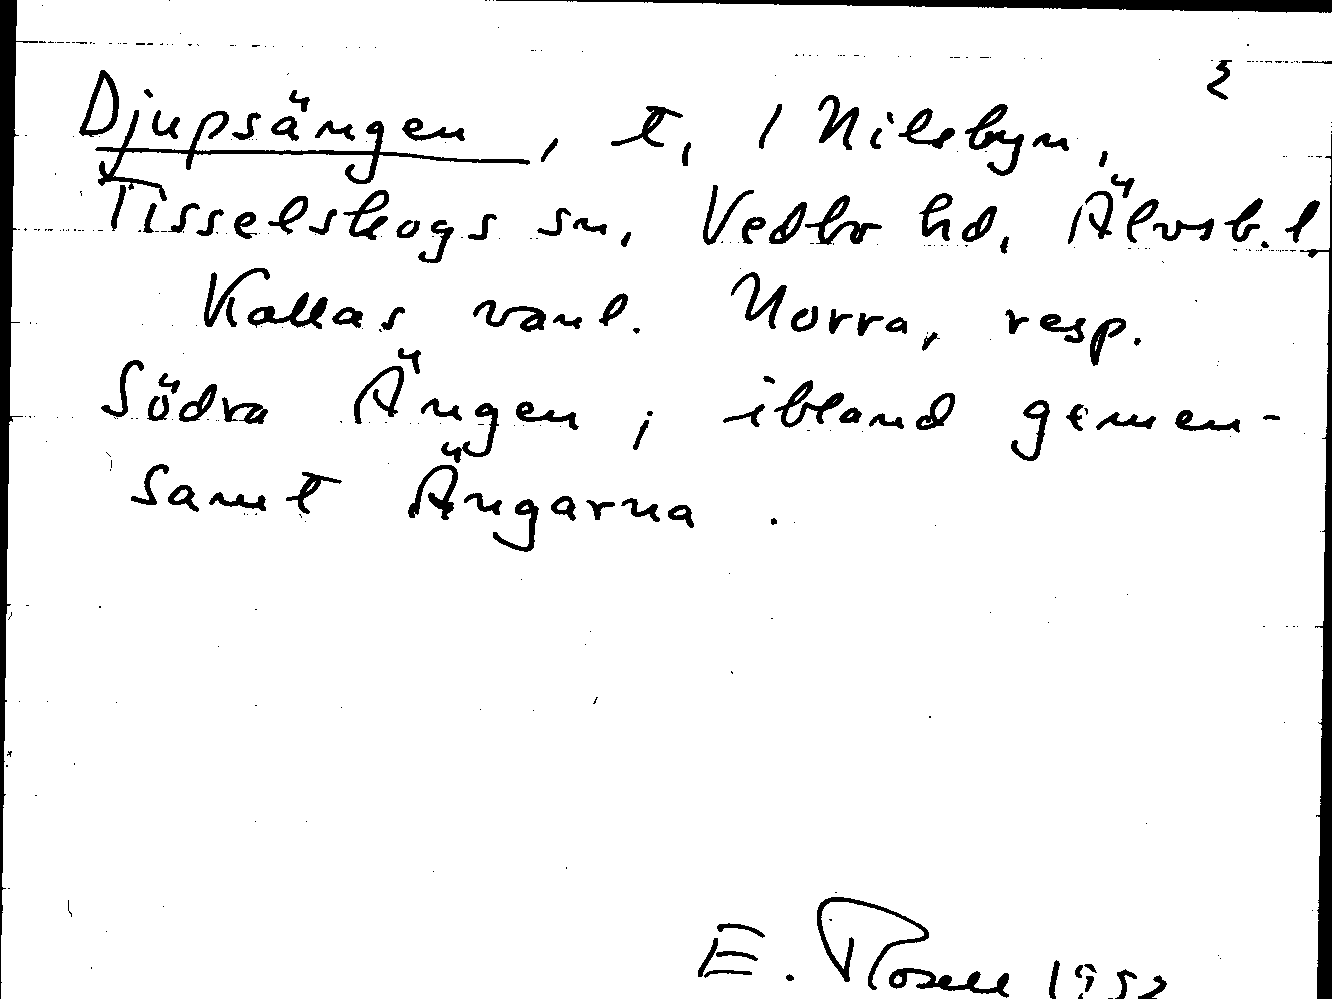 Djupsängen, t, 1 Nilsbyn,
Tisselskogs sn, Vedbo hd, Älvsb. l.
Kallas vanl. Norra, resp.
Södra Ängen; ibland gemen-
samt Ängarna.
E. Rosell 1952